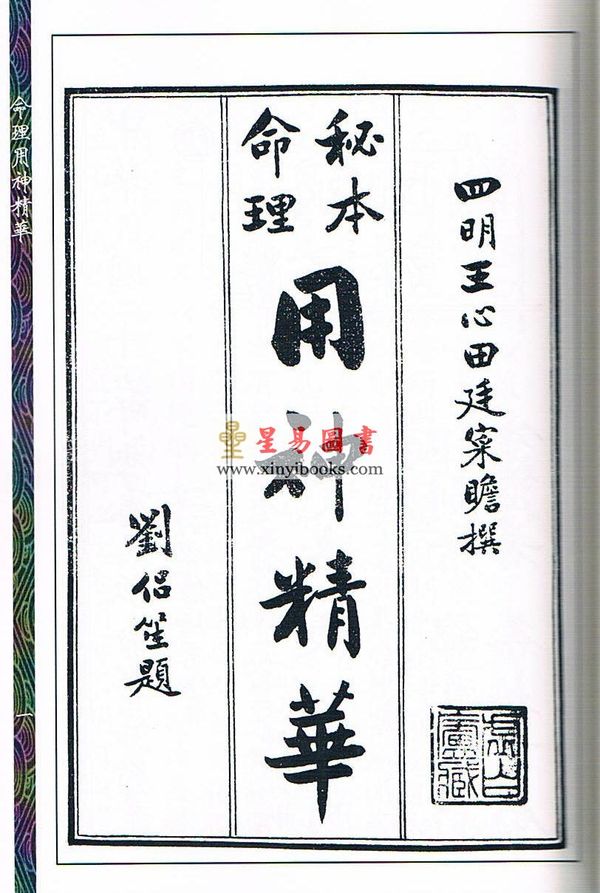 四明王心田廷寀瞻撰
秘本
命理
用神精華
劉侶笙題
虛白廬藏
星易圖書
www.xinyibooks.com
命理用神精華
一